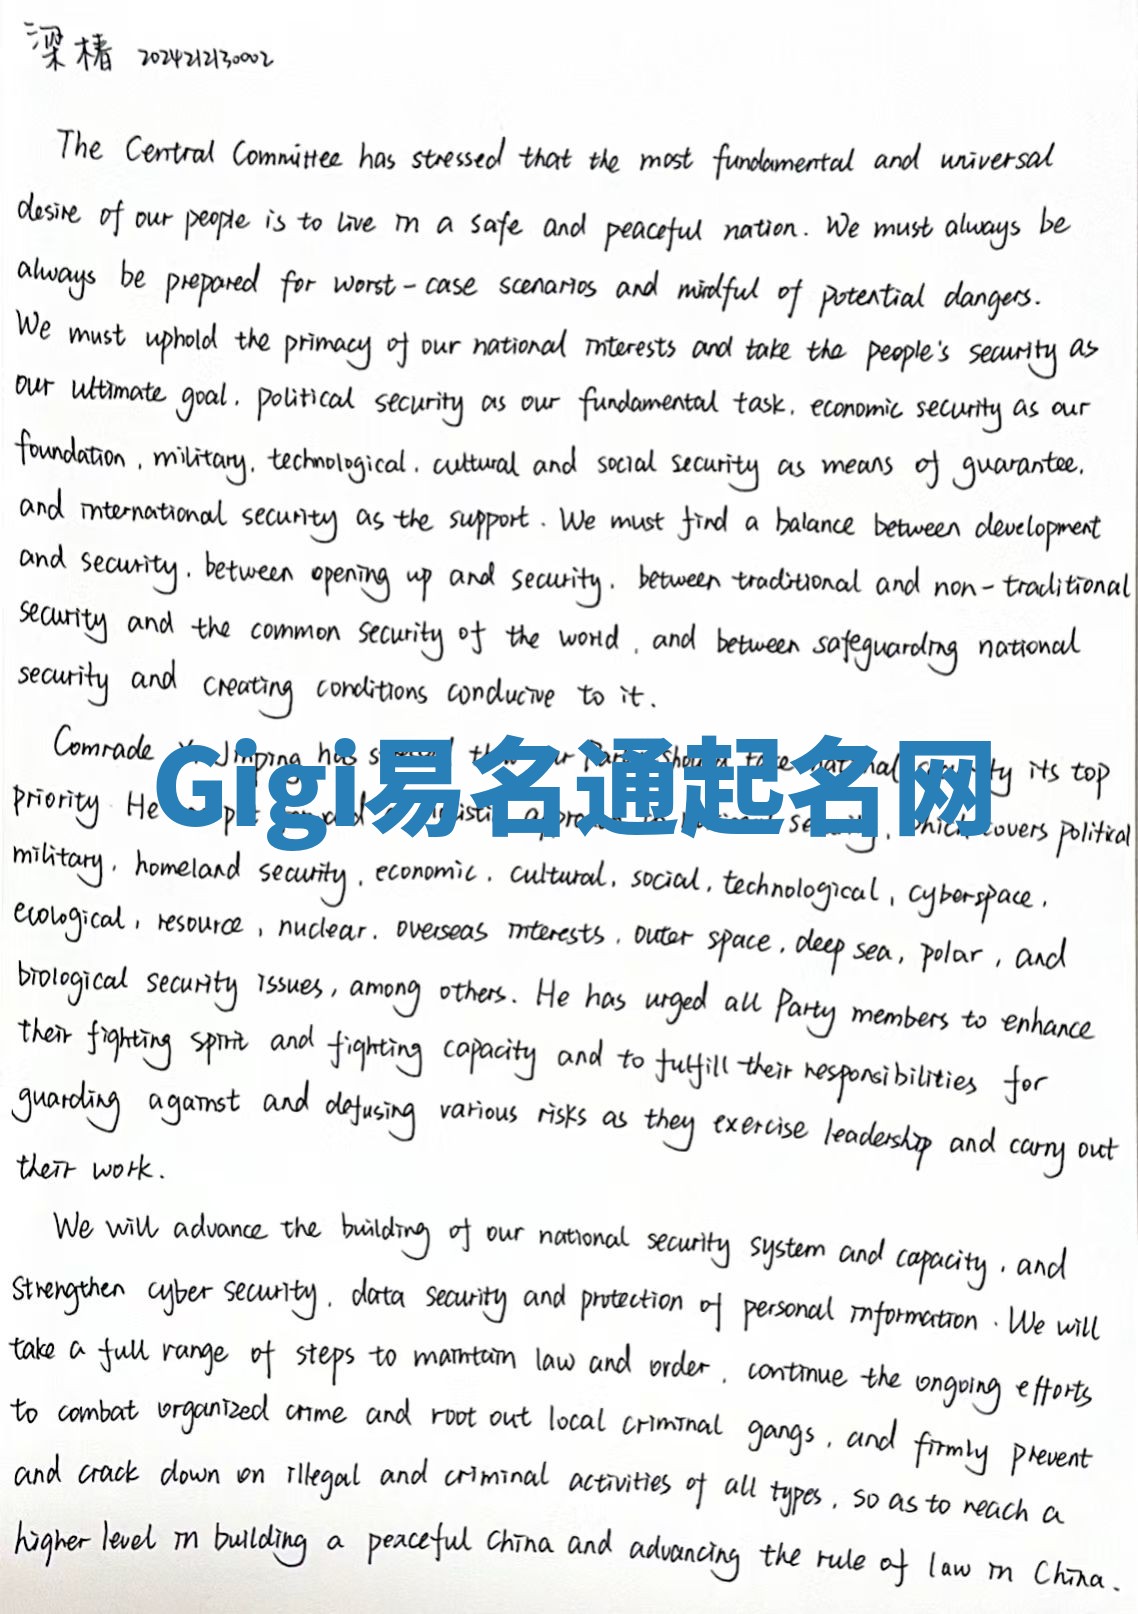 梁椿 2024212130002
The Central Committee has stressed that the most fundamental and universal
desire of our people is to live in a safe and peaceful nation. We must always be
always be prepared for worst-case scenarios and mindful of potential dangers.
We must uphold the primacy of our national interests and take the people's security as
our ultimate goal, political security as our fundamental task, economic security as our
foundation, military, technological, cultural and social security as means of guarantee,
and international security as the support. We must find a balance between development
and security, between opening up and security, between traditional and non-traditional
security and the common security of the world, and between safeguarding national
security and creating conditions conducive to it.
Comrade Jinping has our Party should take national its top
Gigi易名通起名网
priority. He which covers political
military, homeland security, economic, cultural, social, technological, cyberspace,
ecological, resource, nuclear, overseas interests, outer space, deep sea, polar, and
biological security issues, among others. He has urged all Party members to enhance
their fighting spirit and fighting capacity and to fulfill their responsibilities for
guarding against and defusing various risks as they exercise leadership and carry out
their work.
We will advance the building of our national security system and capacity, and
strengthen cyber security, data security and protection of personal information. We will
take a full range of steps to maintain law and order, continue the ongoing efforts
to combat organized crime and root out local criminal gangs, and firmly prevent
and crack down on illegal and criminal activities of all types, so as to reach a
higher level in building a peaceful China and advancing the rule of law in China.